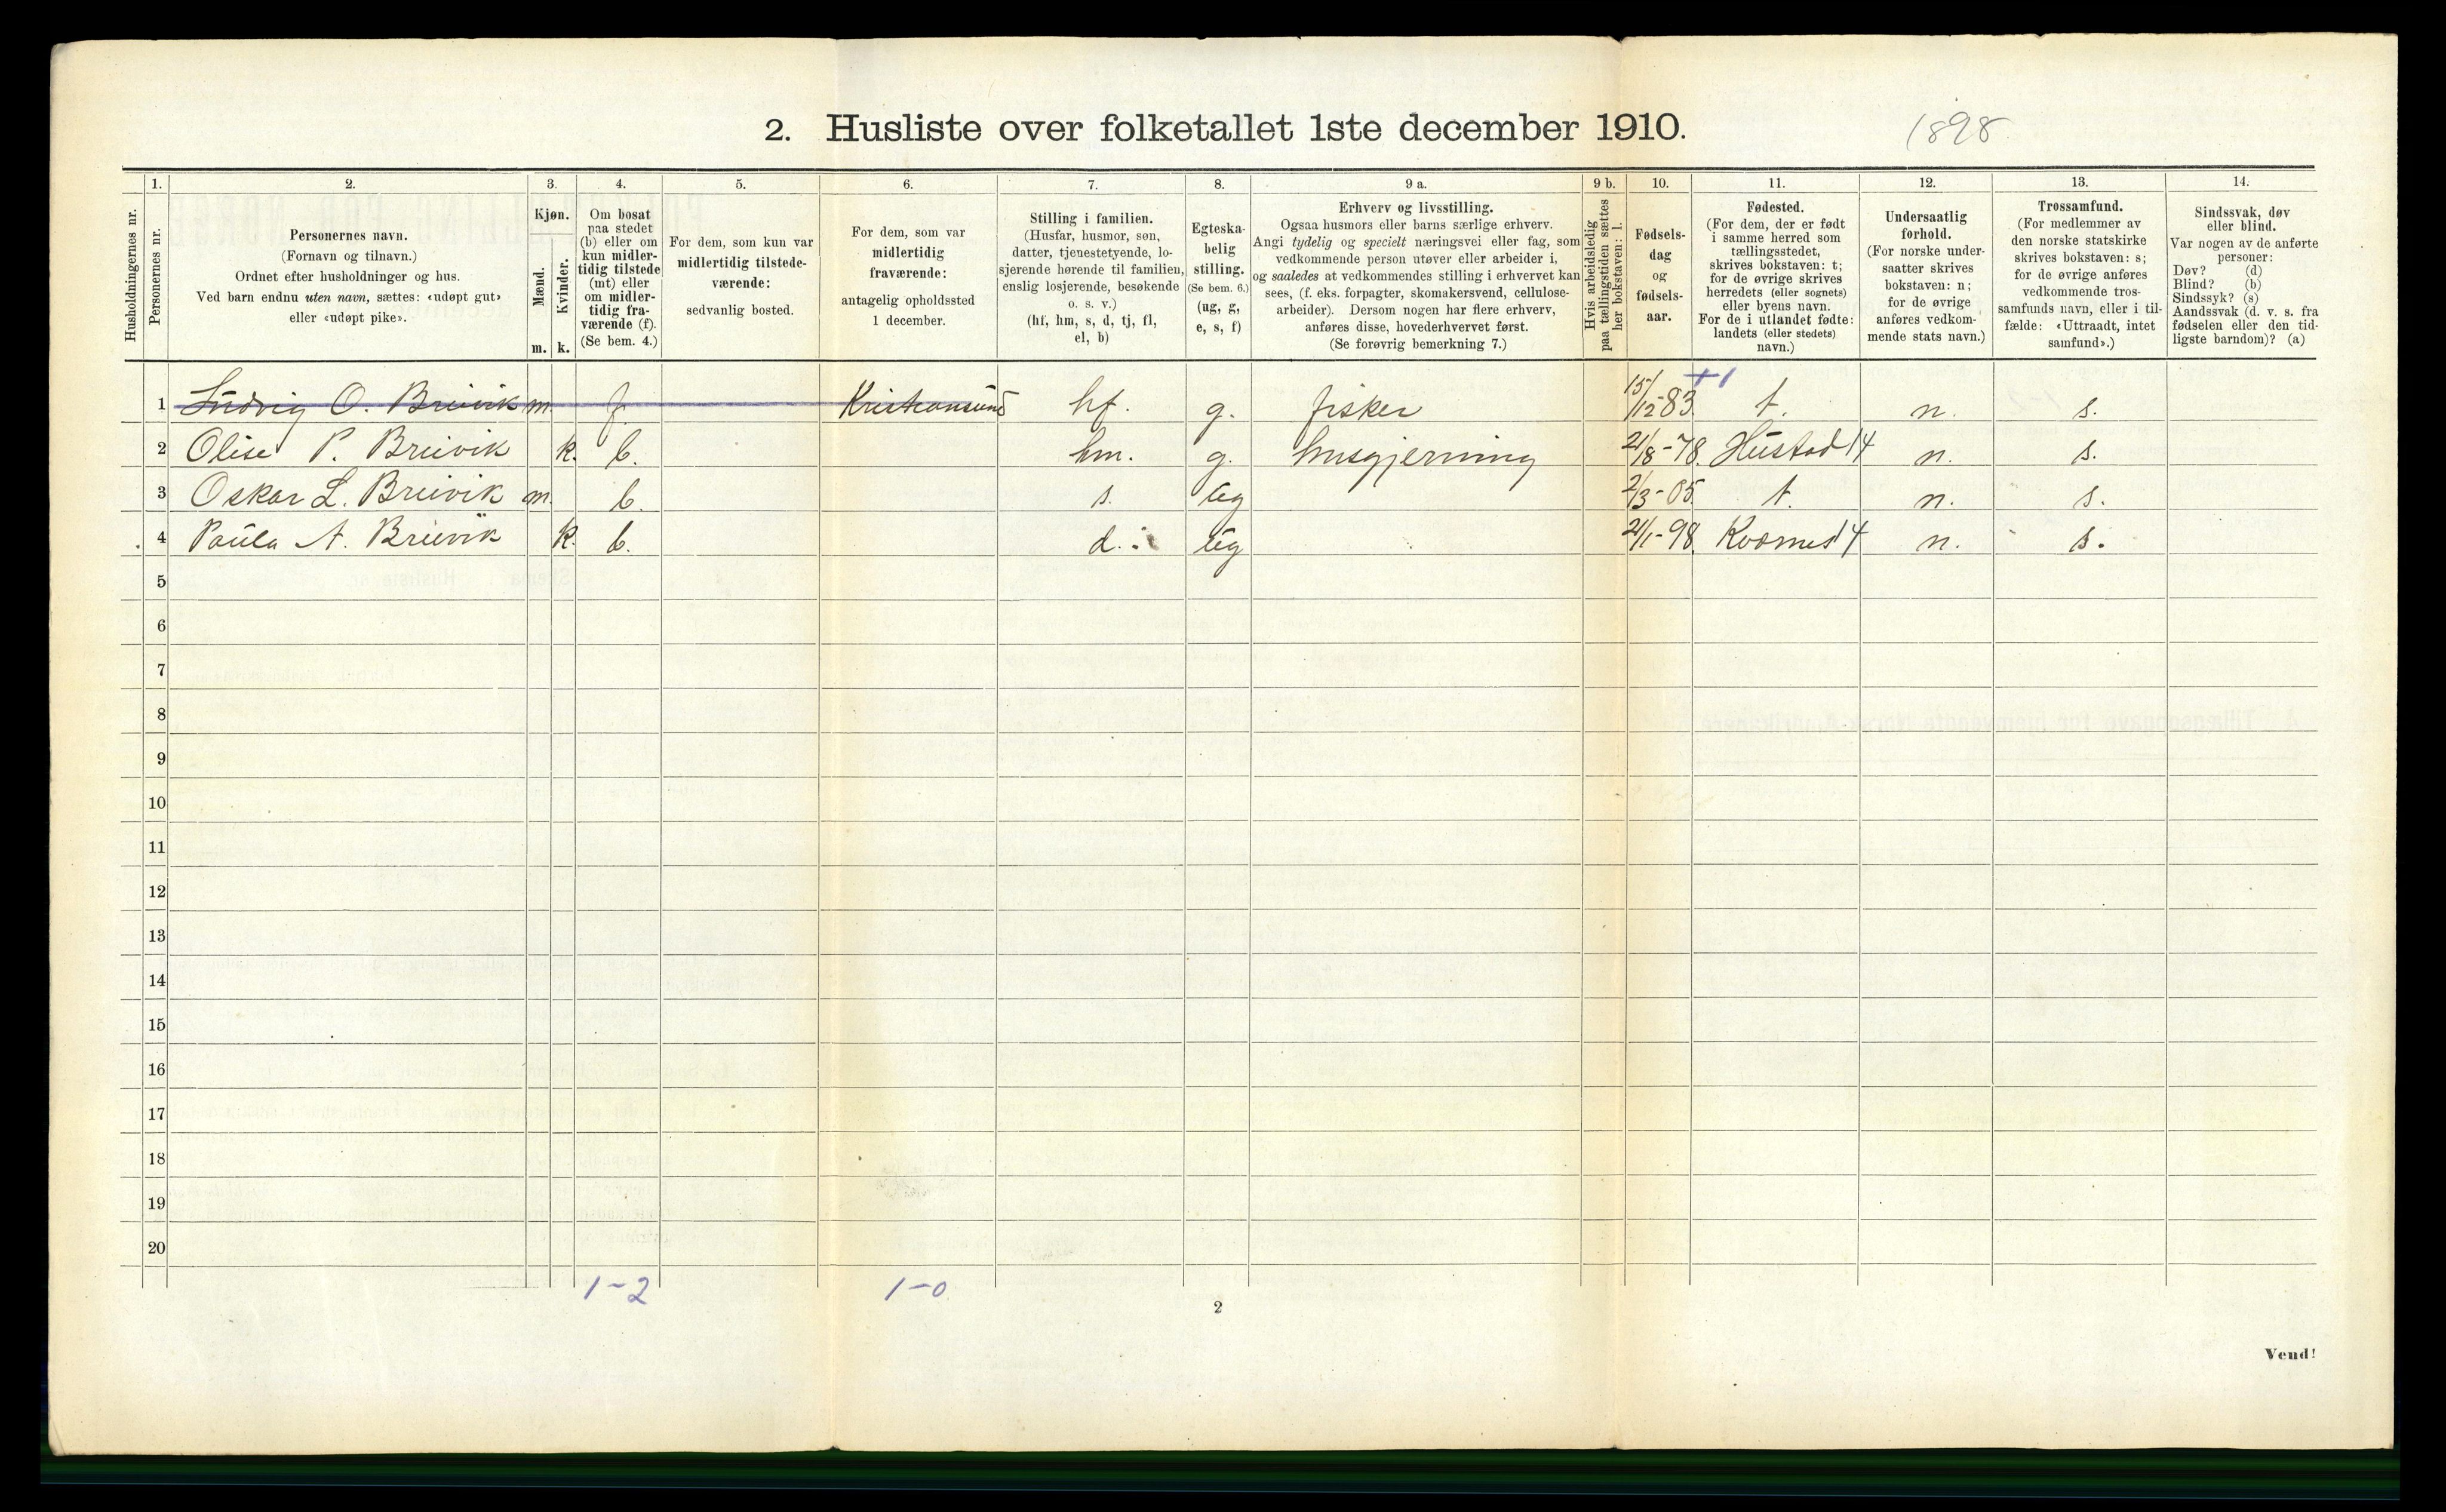 2. Husliste over folketallet 1ste december 1910.
1898
Husholdningernes nr.
1.
Personernes nr.
2.
Personernes navn.
(Fornavn og tilnavn.)
Ordnet efter husholdninger og hus.
Ved barn endnu uten navn, sættes: «udøpt gut»
eller «udøpt pike».
3.
Kjøn.
Mænd.
m.
Kvinder.
k.
4.
Om bosat
paa stedet
(b) eller om
kun midler-
tidig tilstede
(mt) eller
om midler-
tidig fra-
værende (f).
(Se bem. 4.)
5.
For dem, som kun var
midlertidig tilstede-
værende:
sedvanlig bosted.
6.
For dem, som var
midlertidig
fraværende:
antagelig opholdssted
1 december.
7.
Stilling i familien.
(Husfar, husmor, søn,
datter, tjenestetyende, lo-
sjerende hørende til familien,
enslig losjerende, besøkende
o. s. v.)
(hf, hm, s, d, tj, fl,
el, b)
8.
Egteska-
belig
stilling.
(Se bem. 6.)
(ug, g,
e, s, f)
9 a.
Erhverv og livsstilling.
Ogsaa husmors eller barns særlige erhverv.
Angi tydelig og specielt næringsvei eller fag, som
vedkommende person utøver eller arbeider i,
og saaledes at vedkommendes stilling i erhvervet kan
sees, (f. eks. forpagter, skomakersvend, cellulose-
arbeider). Dersom nogen har flere erhverv,
anføres disse, hovederhvervet først.
(Se forøvrig bemerkning 7.)
9 b.
Hvis arbeidsledig
paa tællingstiden sættes
her bokstaven: l.
10.
Fødsels-
dag
og
fødsels-
aar.
11.
Fødested.
(For dem, der er født
i samme herred som
tællingsstedet,
skrives bokstaven: t;
for de øvrige skrives
herredets (eller sognets)
eller byens navn.
For de i utlandet fødte:
landets (eller stedets)
navn.)
12.
Undersaatlig
forhold.
(For norske under-
saatter skrives
bokstaven: n;
for de øvrige
anføres vedkom-
mende stats navn.)
13.
Trossamfund.
(For medlemmer av
den norske statskirke
skrives bokstaven: s;
for de øvrige anføres
vedkommende tros-
samfunds navn, eller i til-
fælde: «Uttraadt, intet
samfund».)
14.
Sindssvak, døv
eller blind.
Var nogen av de anførte
personer:
Døv? (d)
Blind? (b)
Sindssyk? (s)
Aandssvak (d. v. s. fra
fødselen eller den tid-
ligste barndom)? (a)
1 Ludvig O. Breivik m. f. Kristiansund hf. g. fisker 15/12-83. t. n. s.
2 Olise P. Breivik k. b. hm. g. husgjerning 21/8-78. Hustad 14 n. s.
3 Oskar L. Breivik m. b. s. ug 2/3-05 t. n. s.
4 Paula A. Breivik k. b. d. ug 21/1-98. Kvernes 14 n. s.
5
6
7
8
9
10
11
12
13
14
15
16
17
18
19
20
1-2 1-0
2
Vend!